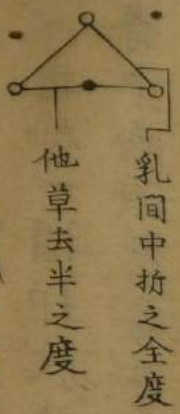 乳間中折之全度
他草去半之度